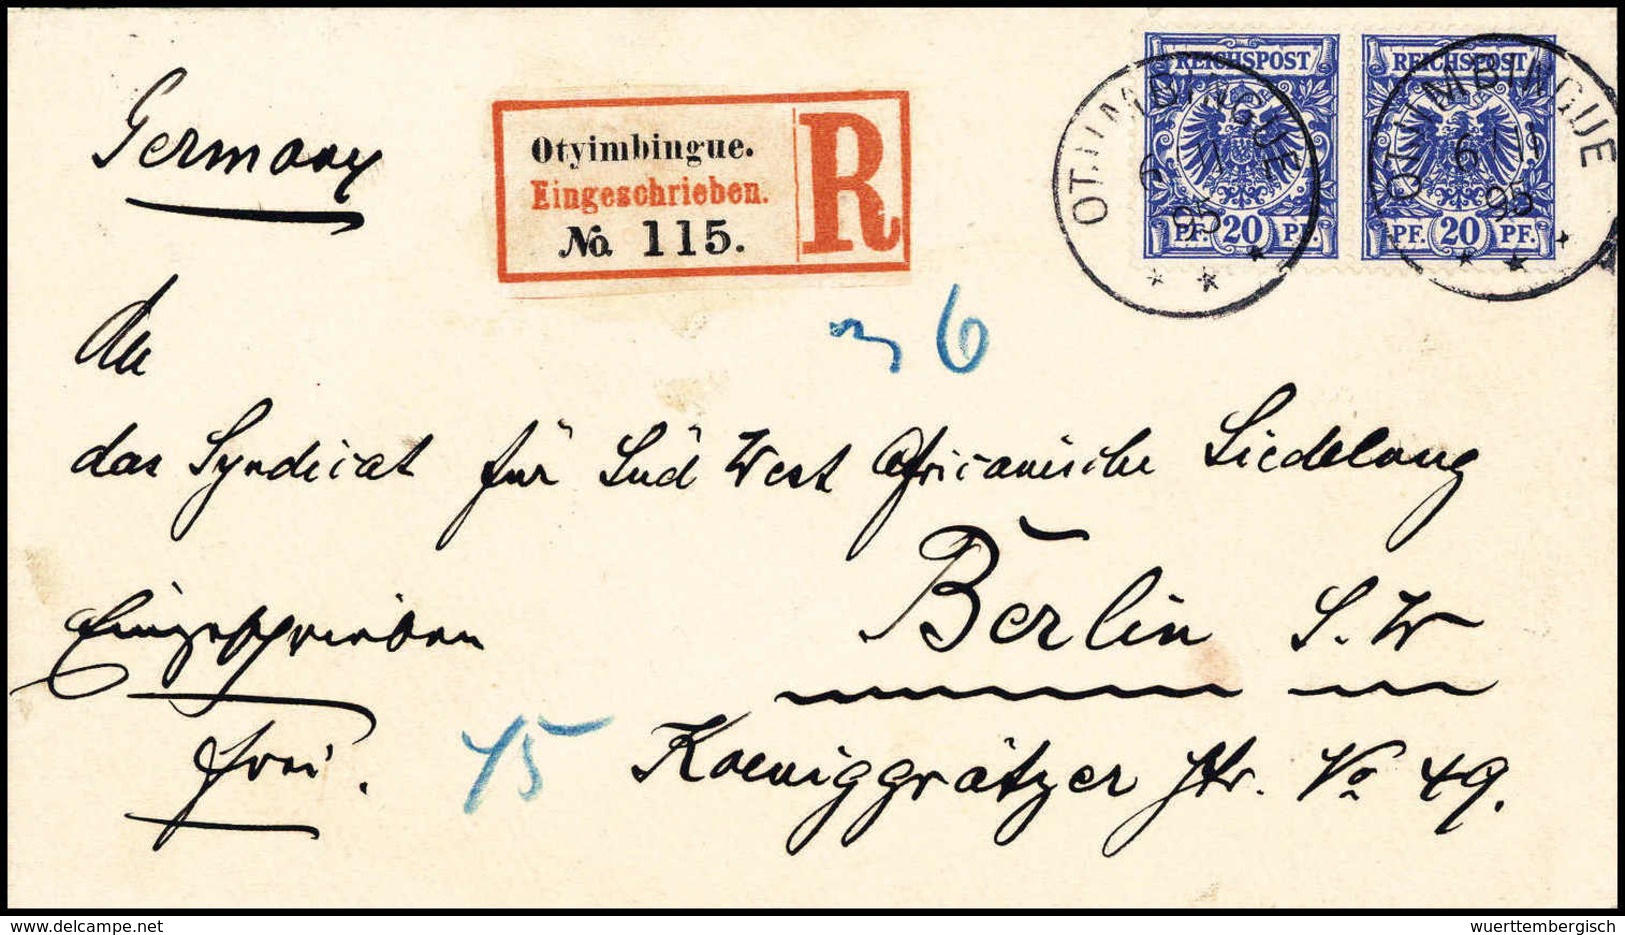 Germany
Otyimbingue.
Eingeschrieben.
No. 115.
R
REICHSPOST
PF. 20 PF.
REICHSPOST
PF. 20 PF.
OTJIMBINGUE
6 II
95
OTJIMBINGUE
6 II
95
36
An
das Syndicat für Süd West Africanische Siedelung
Berlin S.W
Eingeschrieben
frei.
75
Koeniggrätzer Str. No 49.
wuerttembergisch